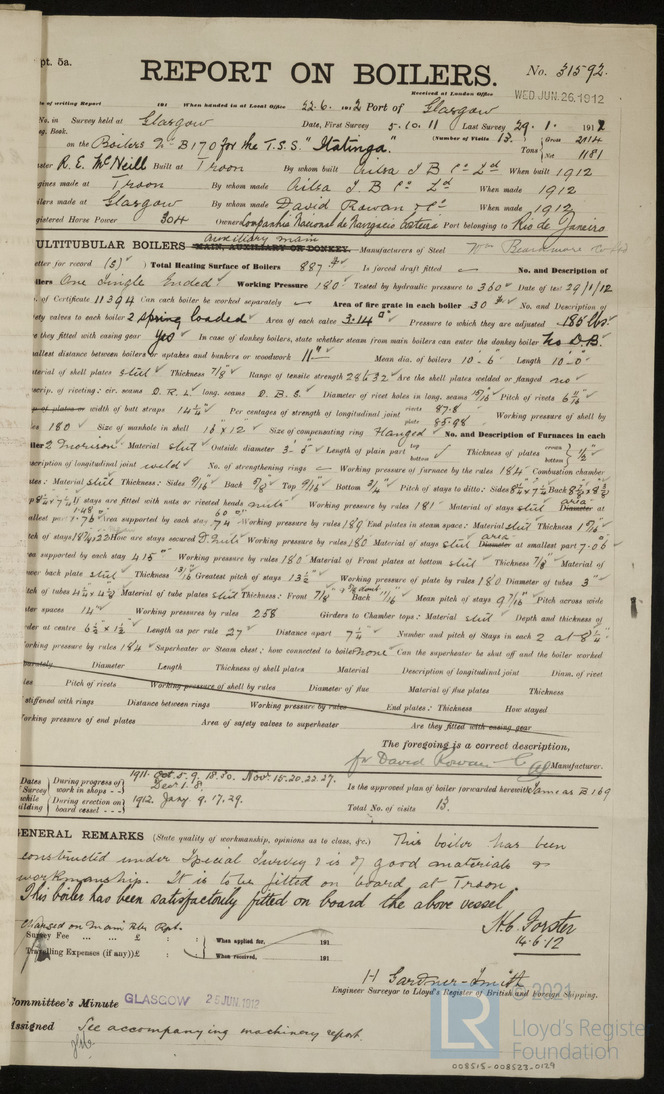 pt. 5a.
REPORT ON BOILERS.
No. 31592.
Received at London Office
WED. JUN. 26. 1912
of writing Report 191 When handed in at Local Office 22.6. 1912 Port of Glasgow
No. in Survey held at Glasgow Date, First Survey 5.10.11 Last Survey 29.1. 1912
Reg. Book. (Number of Visits 13.)
on the Boilers No B170 for the T.S.S. "Itatinga." Tons Gross 2114 Net 1181
R. E. McNeill Built at Troon By whom built Ailsa S B Co Ld When built 1912
gines made at Troon By whom made Ailsa S B Co Ld When made 1912
ilers made at Glasgow By whom made David Rowan & Co When made 1912
gistered Horse Power 304 Owner Companhia Nacional de Navigacio Costeira Port belonging to Rio de Janeiro
ULTITUBULAR BOILERS MAIN, AUXILIARY OR DONKEY. Auxiliary main Manufacturers of Steel Wm Beardmore Co Ld
etter for record (S) Total Heating Surface of Boilers 887 Is forced draft fitted — No. and Description of
ilers One Single Ended Working Pressure 180 Tested by hydraulic pressure to 360 Date of test 29/1/12
o. of Certificate 11394 Can each boiler be worked separately — Area of fire grate in each boiler 30 No. and Description of
ety valves to each boiler 2 spring loaded Area of each valve 3.14 Pressure to which they are adjusted 185 lbs
e they fitted with easing gear Yes In case of donkey boilers, state whether steam from main boilers can enter the donkey boiler No D.B
mallest distance between boilers or uptakes and bunkers or woodwork 11" Mean dia. of boilers 10'-6" Length 10'-0"
aterial of shell plates steel Thickness 7/8" Range of tensile strength 28 & 32 Are the shell plates welded or flanged no
escrip. of riveting: cir. seams D.R.L. long. seams D.B.S. Diameter of rivet holes in long. seams 15/16 Pitch of rivets
p of plates or width of butt straps 14 1/4" Per centages of strength of longitudinal joint rivets 87.8 plate 85.98 Working pressure of shell by
les 180 Size of manhole in shell 16 x 12 Size of compensating ring Flanged No. and Description of Furnaces in each
iler 2 Morison Material steel Outside diameter 3'-5" Length of plain part top bottom Thickness of plates crown bottom 1/2"
escription of longitudinal joint weld No. of strengthening rings — Working pressure of furnace by the rules 184 Combustion chamber
tes: Material steel Thickness: Sides 9/16 Back 5/8 Top 9/16 Bottom 3/4 Pitch of stays to ditto: Sides 8 1/4 x 7 1/4 Back
p 8 1/4 x 7 1/4 If stays are fitted with nuts or riveted heads nuts Working pressure by rules 181 Material of stays steel Diameter area at
allest part 1.76 Area supported by each stay 60 74 Working pressure by rules 189 End plates in steam space: Material steel Thickness
tch of stays How are stays secured D.nuts Working pressure by rules 180 Material of stays steel Diameter area at smallest part 7.06
ea supported by each stay 415 Working pressure by rules 180 Material of Front plates at bottom steel Thickness 7/8 Material of
wer back plate steel Thickness 13/16 Greatest pitch of stays 13 1/2 Working pressure of plate by rules 180 Diameter of tubes 3"
itch of tubes Material of tube plates steel Thickness: Front 7/8 Back 11/16 Mean pitch of stays 9 7/16 Pitch across wide
ter spaces 14" Working pressures by rules 258 Girders to Chamber tops: Material steel Depth and thickness of
der at centre 6 1/2 x 1 1/2 Length as per rule 27 Distance apart 7 1/4 Number and pitch of Stays in each 2 at 8 1/4
orking pressure by rules 184 Superheater or Steam chest; how connected to boiler none Can the superheater be shut off and the boiler worked
parately Diameter Length Thickness of shell plates Material Description of longitudinal joint Diam. of rivet
les Pitch of rivets Working pressure of shell by rules Diameter of flue Material of flue plates Thickness
stiffened with rings Distance between rings Working pressure by rules End plates: Thickness How stayed
orking pressure of end plates Area of safety valves to superheater Are they fitted with easing gear
The foregoing is a correct description,
for David Rowan & Co Manufacturer.
Dates Survey while ilding During progress of work in shops - - 1911. Oct. 5. 9. 18. 30. Nov. 15. 20. 22. 27. Dec. 1. 8.
During erection on board vessel - - - 1912. Jany 9. 17. 29.
Is the approved plan of boiler forwarded herewith Same as B169
Total No. of visits 13.
GENERAL REMARKS (State quality of workmanship, opinions as to class, &c.) This boiler has been
constructed under Special Survey & is of good materials &
workmanship. It is to be fitted on board at Troon.
This boiler has been satisfactorily fitted on board the above vessel
H.C. Forster
14.6.12
Charged on Main Blr Rpt.
Survey Fee ... ... £ : : When applied for, 191
Travelling Expenses (if any) £ : : When received, 191
H Gardner-Smith
Engineer Surveyor to Lloyd's Register of British and Foreign Shipping.
Committee's Minute GLASGOW 25 JUN. 1912
Assigned See accompanying machinery report.
LR
© 2021
Lloyd's Register
Foundation
008515-008523-0129